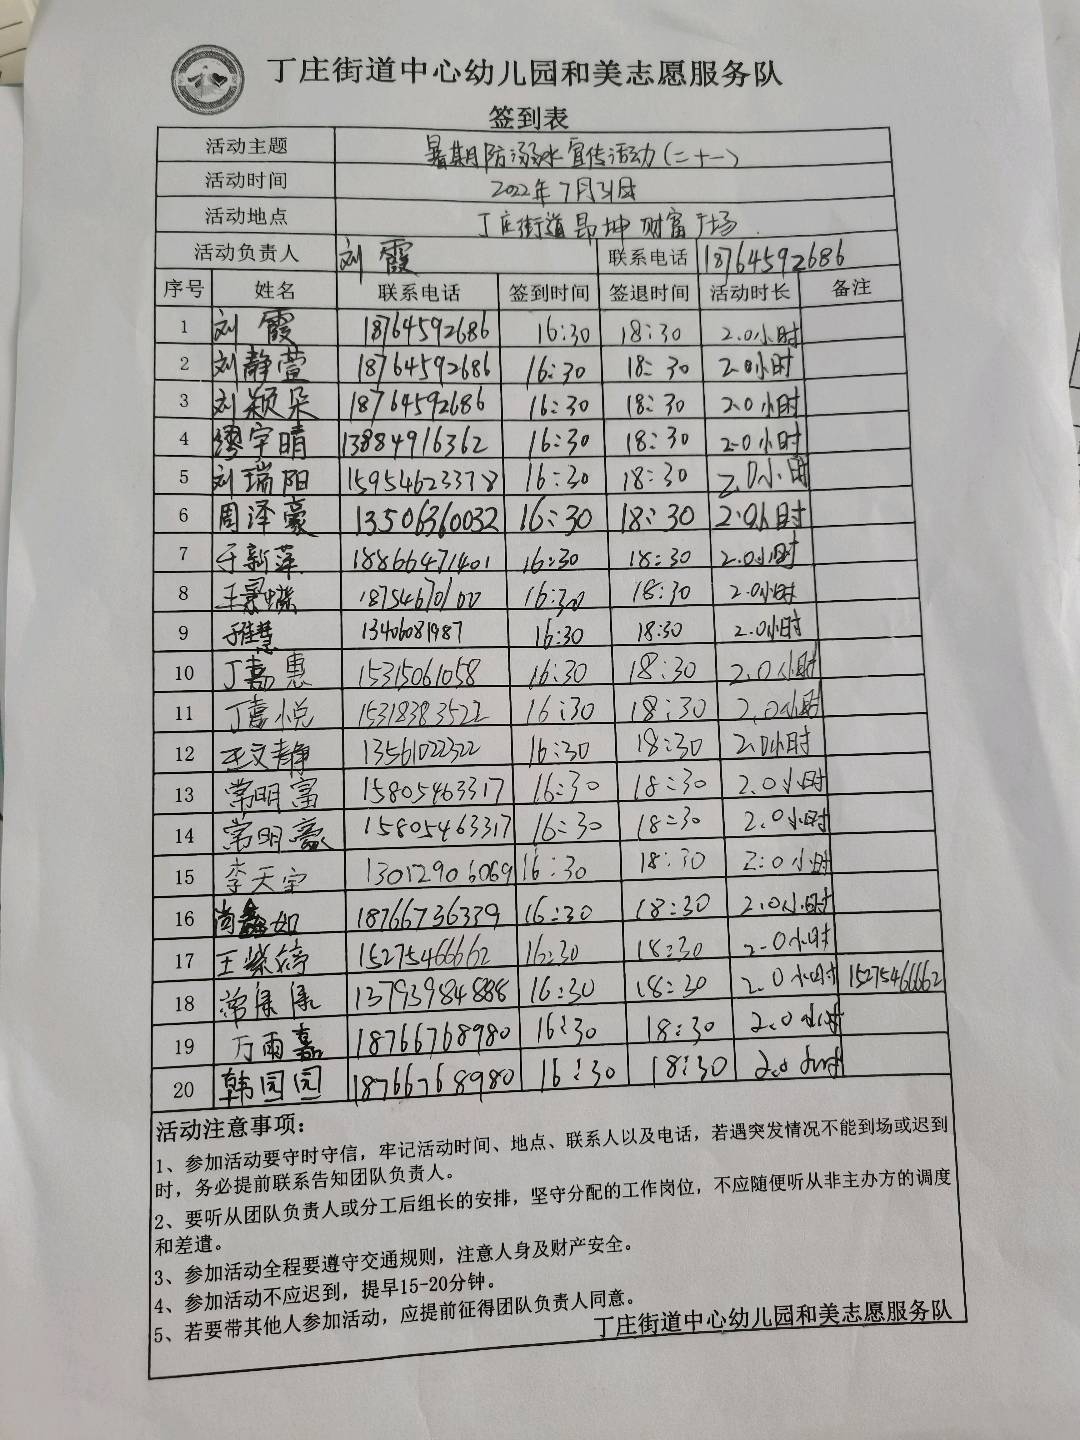 丁庄街道中心幼儿园和美志愿服务队
签到表
活动主题 暑期防溺水宣传活动(二十一)
活动时间 2022年7月31日
活动地点 丁庄街道昂坤财富广场
活动负责人 刘霞 联系电话 18764592686
序号 姓名 联系电话 签到时间 签退时间 活动时长 备注
1 刘霞 18764592686 16:30 18:30 2.0小时
2 刘静萱 18764592686 16:30 18:30 2.0小时
3 刘颖朵 18764592686 16:30 18:30 2.0小时
4 缪宇晴 13884916362 16:30 18:30 2.0小时
5 刘瑞阳 15954623378 16:30 18:30 2.0小时
6 周泽豪 13506360032 16:30 18:30 2.0小时
7 于新萍 18866471401 16:30 18:30 2.0小时
8 18754670100 16:30 18:30 2.0小时
9 13406081987 16:30 18:30 2.0小时
10 丁嘉惠 15315061058 16:30 18:30 2.0小时
11 丁嘉悦 15318383522 16:30 18:30 2.0小时
12 王文静 13561022322 16:30 18:30 2.0小时
13 常明富 15805463317 16:30 18:30 2.0小时
14 常明豪 15805463317 16:30 18:30 2.0小时
15 李天宇 13012906069 16:30 18:30 2.0小时
16 尚鑫如 18766736339 16:30 18:30 2.0小时
17 王紫婷 15275466662 16:30 18:30 2.0小时
18 13793984888 16:30 18:30 2.0小时 15275466662
19 万雨嘉 18766768980 16:30 18:30 2.0小时
20 韩园园 18766768980 16:30 18:30 2.0小时
活动注意事项：
1、参加活动要守时守信，牢记活动时间、地点、联系人以及电话，若遇突发情况不能到场或迟到
时，务必提前联系告知团队负责人。
2、要听从团队负责人或分工后组长的安排，坚守分配的工作岗位，不应随便听从非主办方的调度
和差遣。
3、参加活动全程要遵守交通规则，注意人身及财产安全。
4、参加活动不应迟到，提早15-20分钟。
5、若要带其他人参加活动，应提前征得团队负责人同意。
丁庄街道中心幼儿园和美志愿服务队